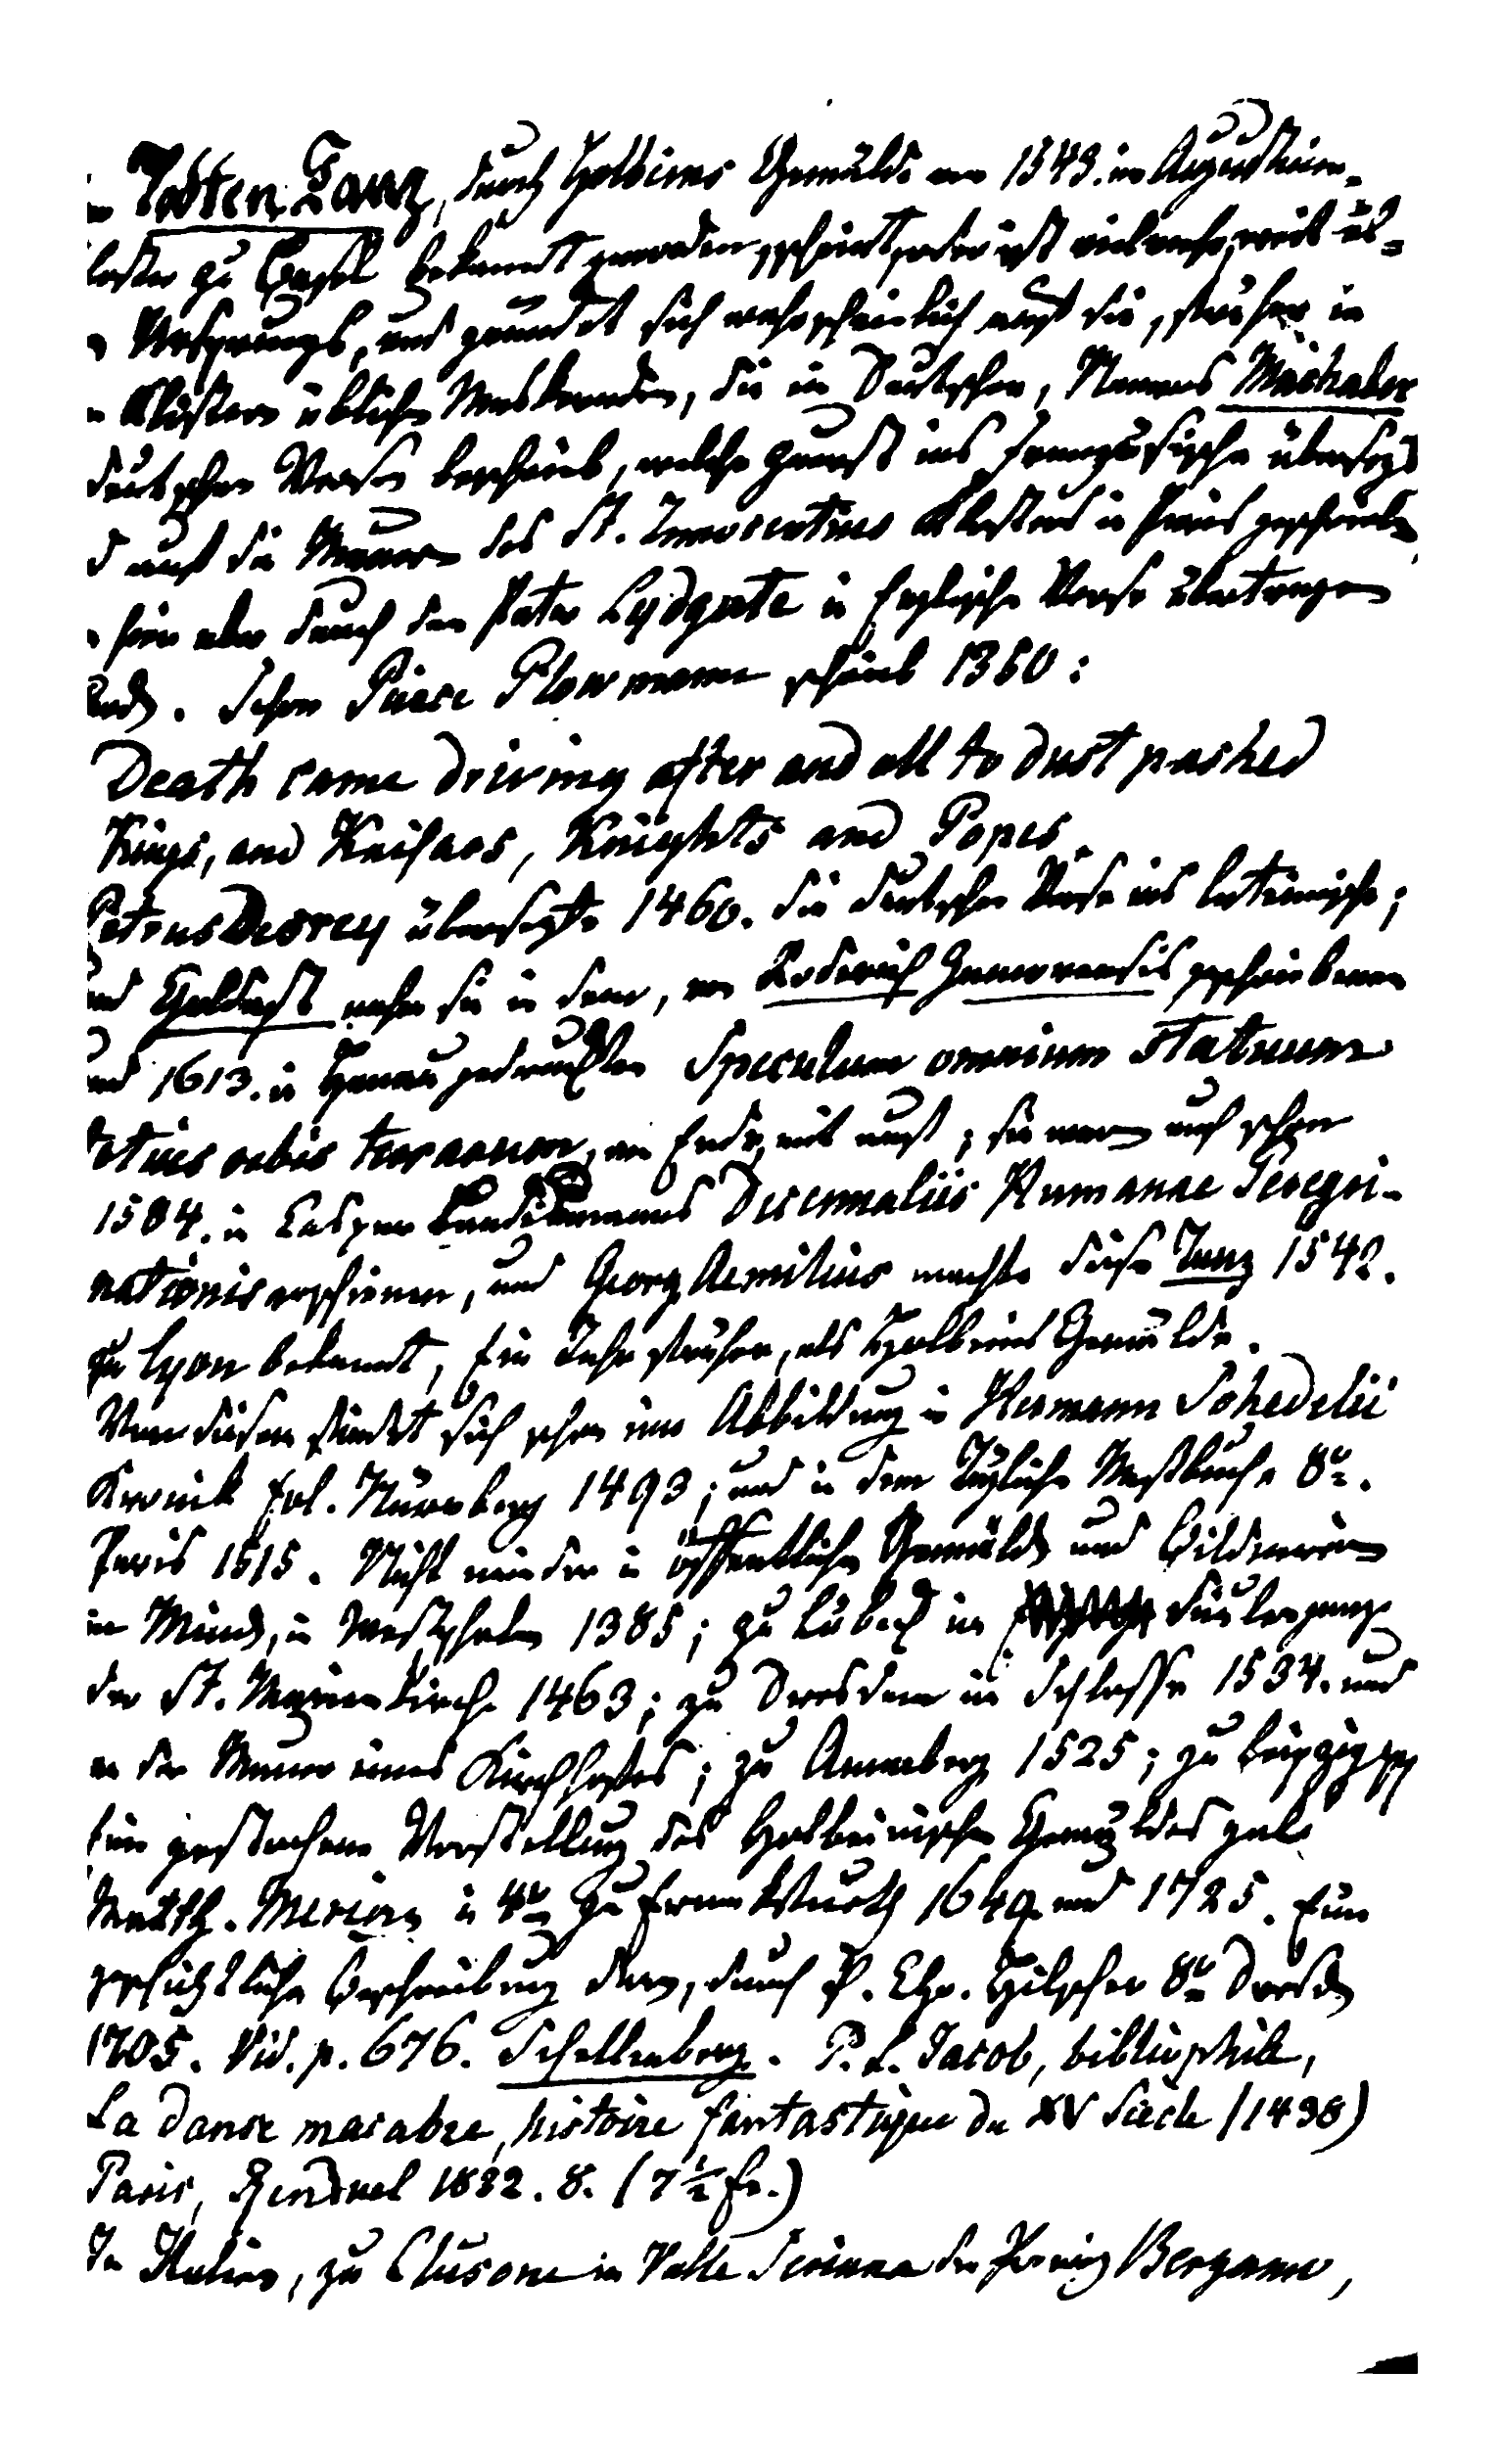 Todten Tanz, durch Holbeins Gemälde von 1543. im Augustiner-
kloster zu Basel bekannt geworden, scheint, oder ist vielmehr, weit äl-
Ursprungs, und gründet sich wahrscheinlich auf die, früher in
Klöstern übliche Maskeraden, die ein Deutscher, Namens Machaber
deutschen Versen beschrieb, welche zuerst ins Französische übersezt
auf die Mauern des St. Innocentius Klosters in Paris geschrieben
hier aber durch den Pater Lydgate in Englische Verse übertragen
Schon Pierce Plowmann schrieb 1350:
Death came driving after and all to dust pashed
Kings, and Kaisars, Knights and Popes.
Petrus Desrey übersezte 1460. die deutschen Verse ins lateinische;
und Goldast nahm sie in dem, von Roderich Zamorensis geschriebenen
und 1613. in Hanau gedruckten Speculum omnium statuum
totius orbis terrarum, am Ende, mit auf; sie waren auch schon
1584. in Caspar Landismanns Decennaliis Humanae Peregri-
nationis erschienen, und Georg Aemilius machte diesen Tanz 1542.
zu Lyon bekannt, ein Jahr früher, als Holbeins Gemälde.
Von diesem findet sich schon eine Abbildung in Hermann Schedelii
Kronik fol. Nürnberg 1493; und in dem Täglichen Meßbuche 8º.
Paris 1515. Nicht minder in öffentlichen Gemälden und Bildnereien
in Minden, in Westphalen 1385; zu Lübeck im Säulengange
der St. Marienkirche 1463; zu Dresden im Schlosse 1534. und
an der Mauer eines Kirchhofes; zu Annaberg 1525; zu Leipzig pp
Eine gestochene Vorstellung des Holbeinischen Gemäldes gab
Matth. Merian in 4º zu Frankfurth 1649. und 1725. Eine
geschichtliche Beschreibung davon, durch P. Chr. Hilscher 8º Dresden
1705. Vid. p. 676. Schellenberg. P. L. Jacob, bibliophile,
La danse macabre, histoire fantastique du XV Siecle (1438)
Paris, Renduel 1832. 8. (7½ fr.)
In Italien, zu Clusone in Valle Seriana der Provinz Bergamo,